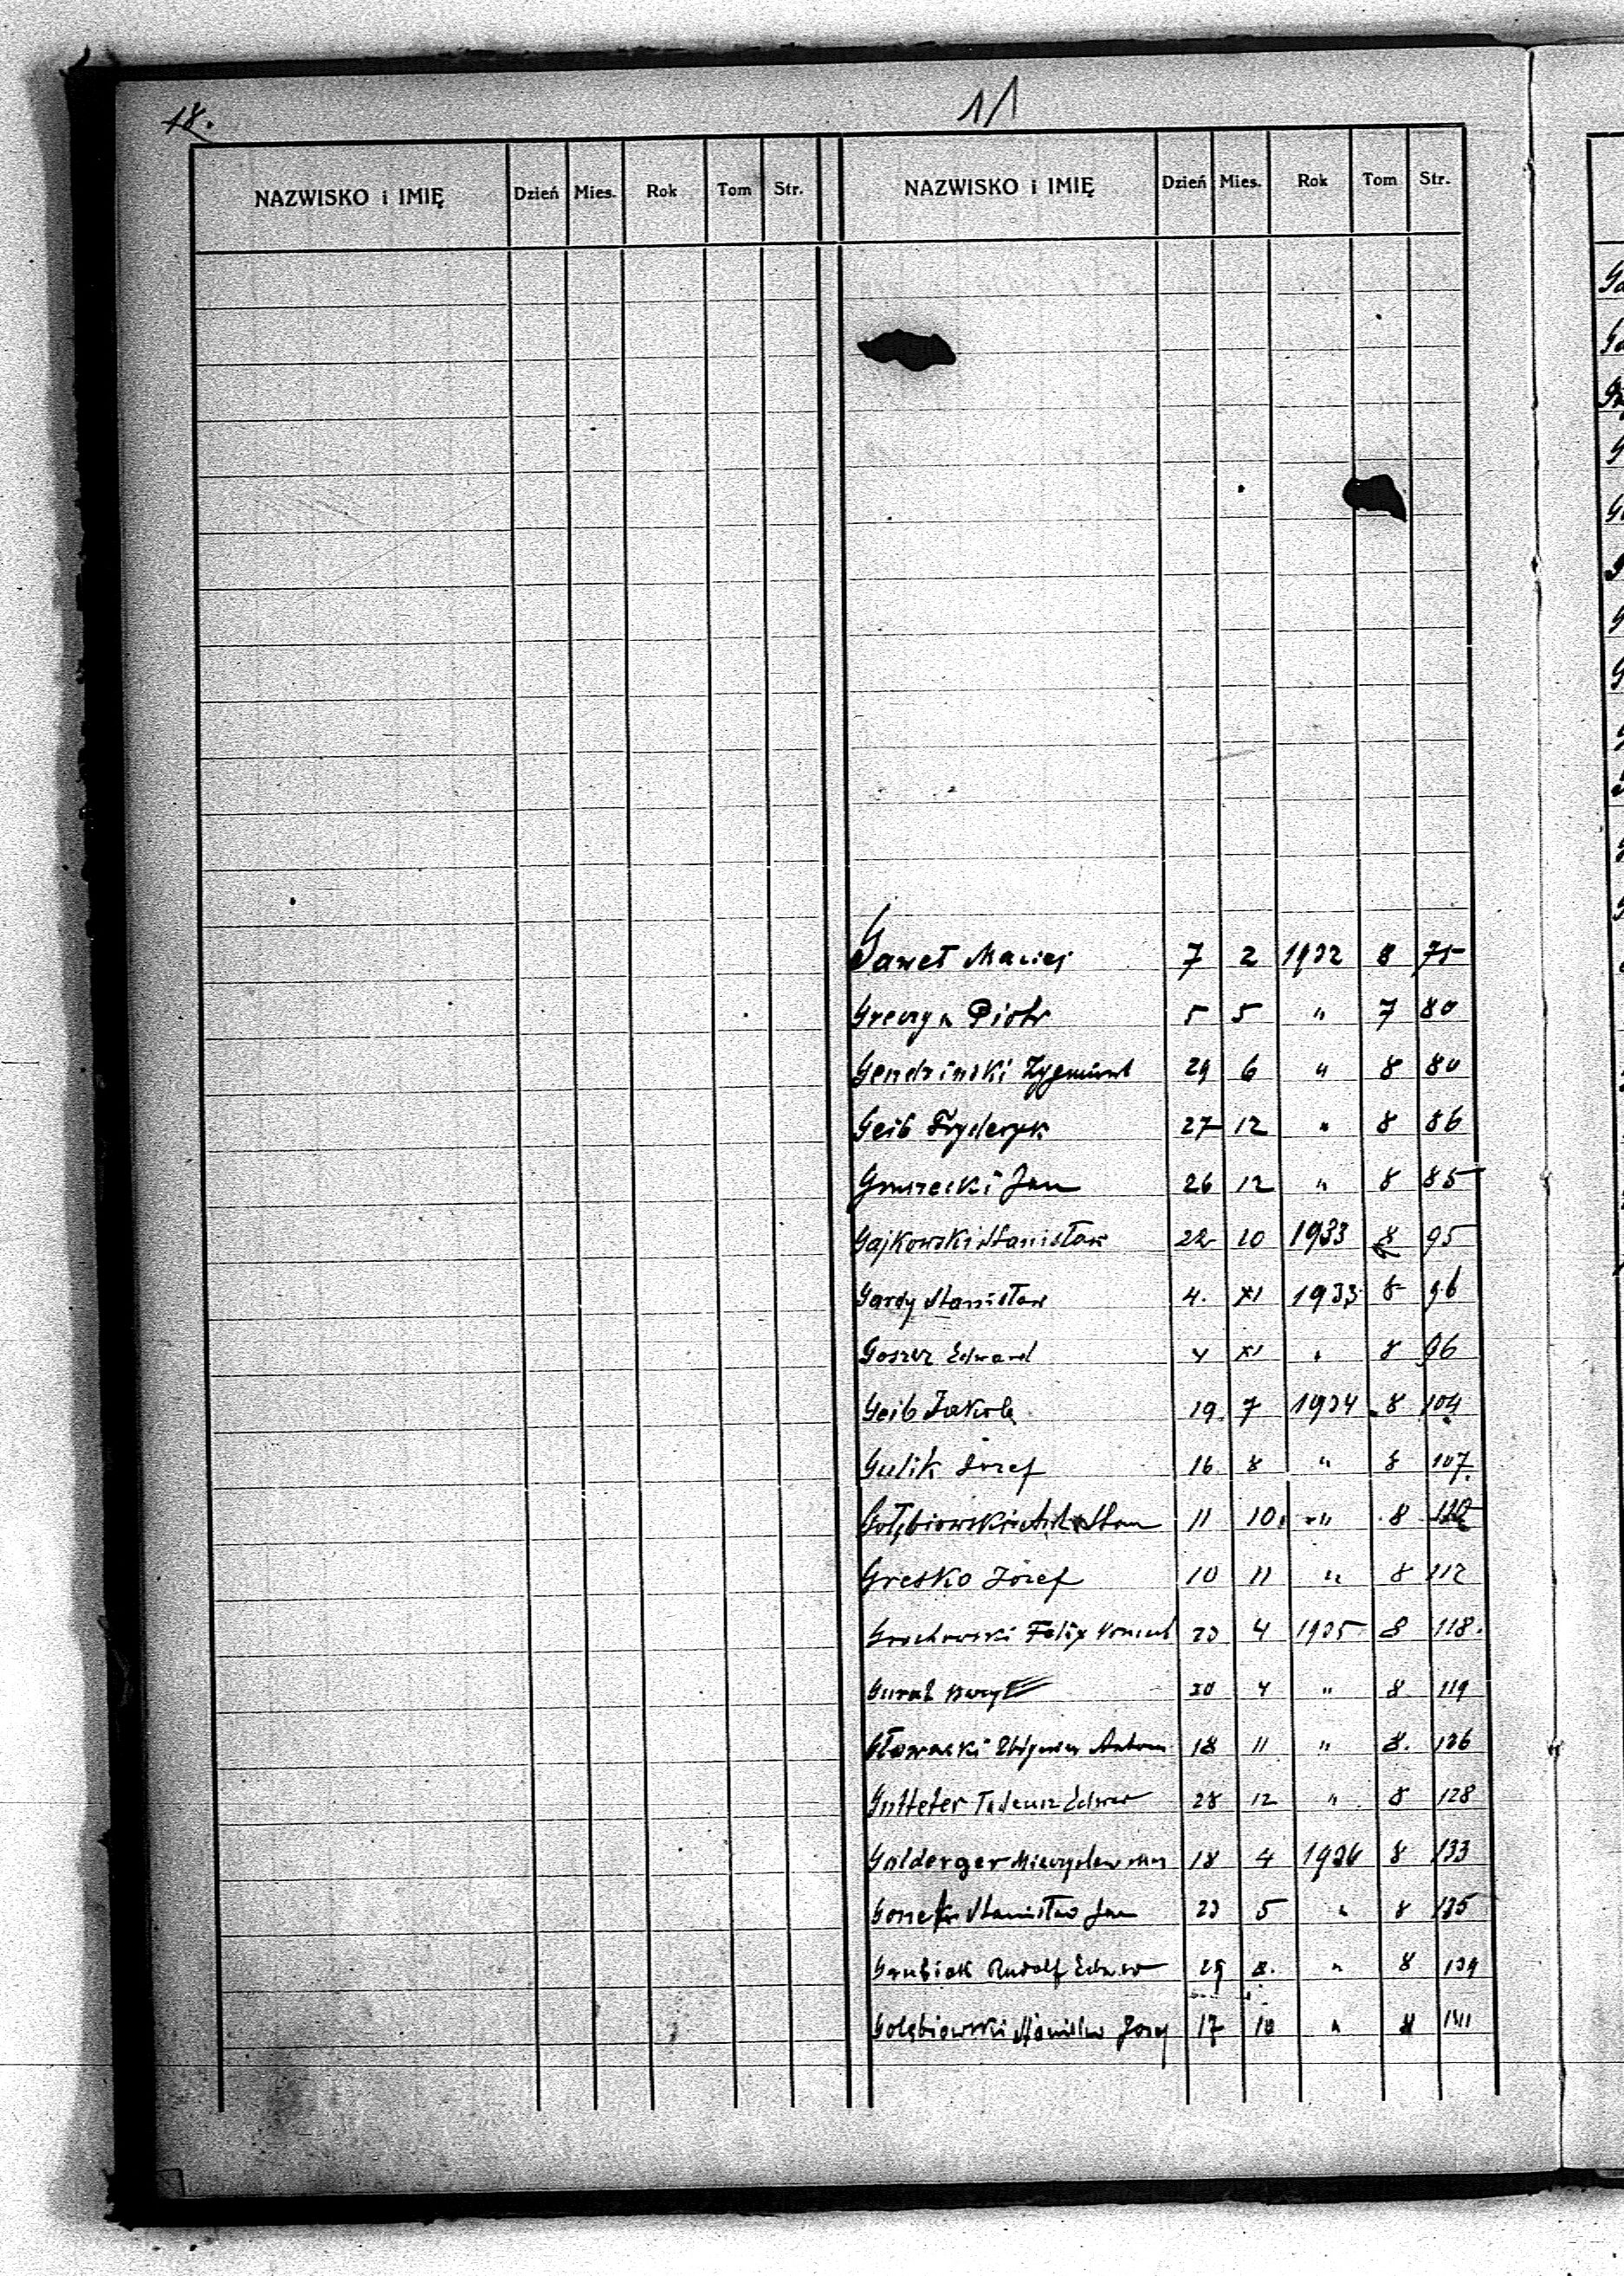 18.
11
NAZWISKO i IMIĘ Dzień Mies. Rok Tom Str. NAZWISKO i IMIĘ Dzień Mies. Rok Tom Str.
Gaweł Maciej 7 2 1932 8 75
Piotr 5 5 " 7 80
Gendzinski Zygmunt 29 6 " 8 80
Geib Fryderyk 27 12 " 8 86
Jan 26 12 " 8 85
Gajkowski Stanisław 22 10 1933 8 95
Gardy Stanisław 4. XI 1933 8 96
Edward 4 XI " 8 96
Geib Jakob 19. 7 1934 8 104
Gulik Józef 16 8 " 8 107.
Gołębiowski 11 10. " 8
Gresko Józef 10 11 " 8 112
Grochowski Felix 23 4 1935 8 118.
Gural 20 4 " 8 119
Zbigniew Antoni 18 11 " 8. 126
Gutteter Tadeusz Edward 28 12 " 8 128
Golderger Mieczysław 18 4 1936 8 133
Stanisław Jan 23 5 " 8 135
Grubiak Rudolf Edward 29 8. " 8 139
Gołębiowski Stanisław Józef 17 10 " 8